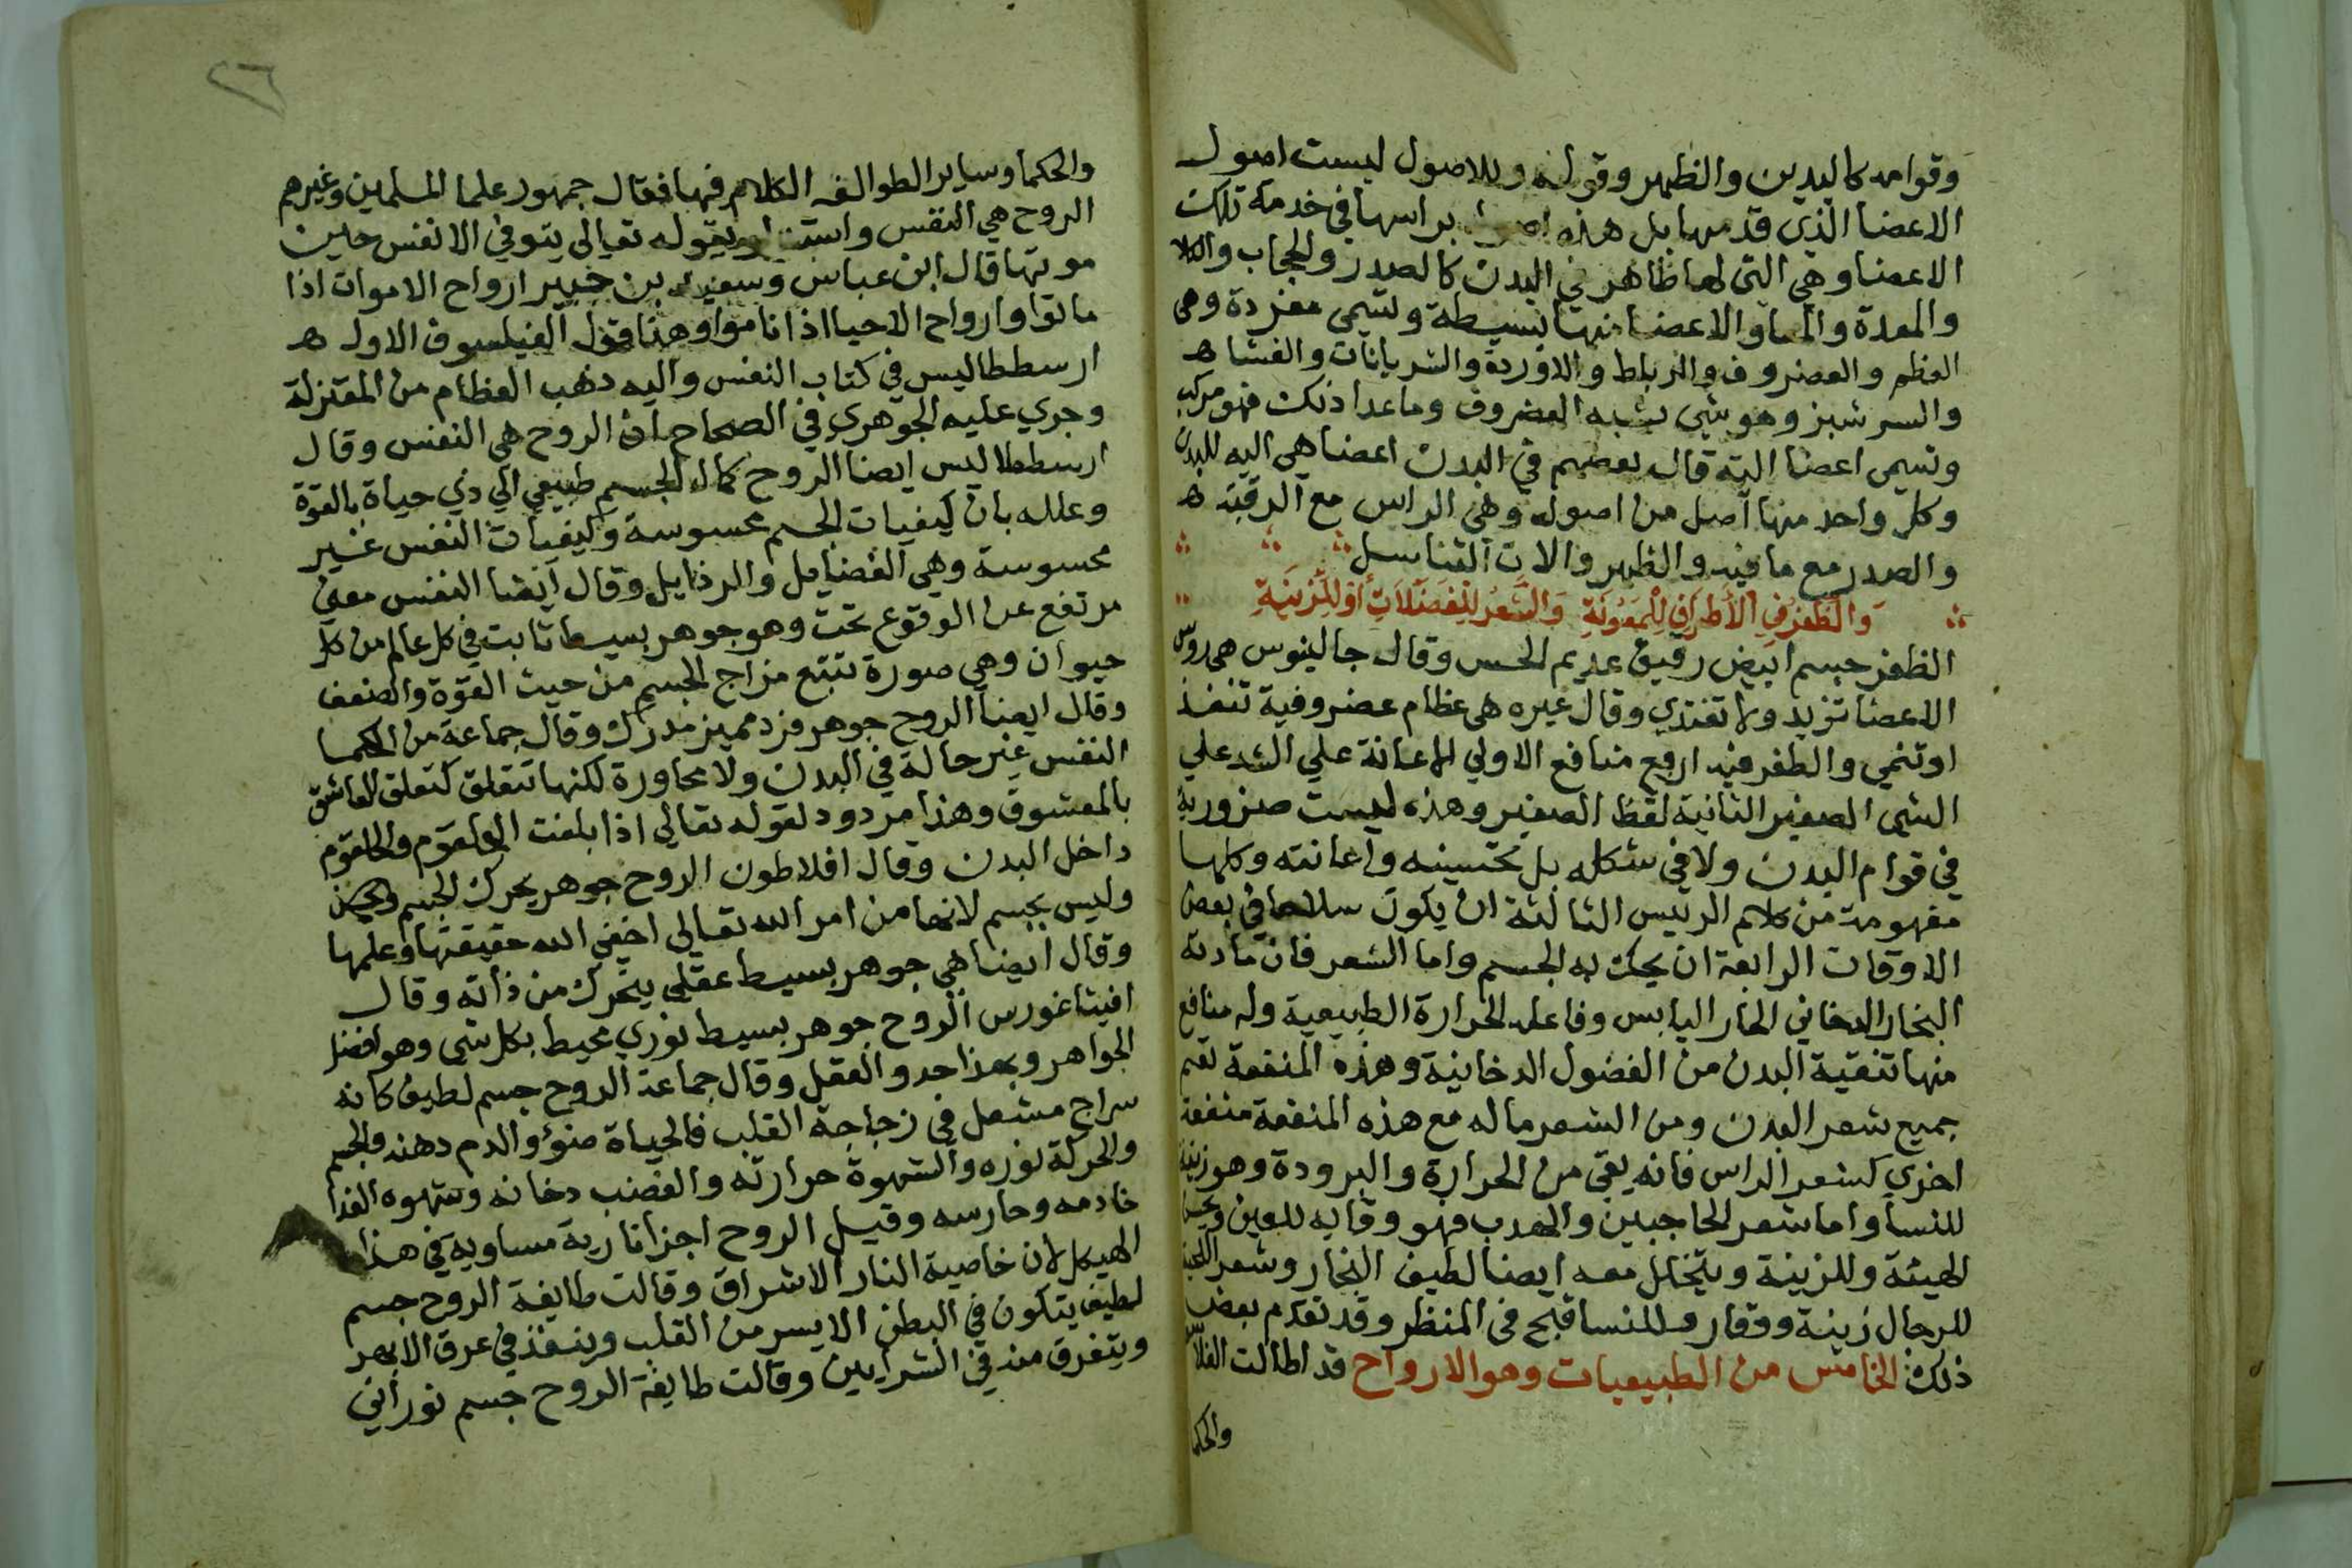 وقوامه كاليدين والظهر وقوله وللاصول ليست اصول
الاعضا الذي قدمها بل هذه براسها في خدمة تلك
الاعضا وهي التي لها ظاهر في البدن كالصدر والحجاب والكلا
والمعدة والمعا والاعضا منها بسيطة وتسمى مفردة وهى
العظم والغضروف والرباط والاوردة والشريانات والغشا ه
والسرشبز وهو شي يشبه الغضروف وما عدا ذلك فهو مركب
وتسمى اعضا اليه قال بعضهم في البدن اعضا هي اليه للبدن
وكل واحد منها اصل من اصوله وهي الراس مع الرقبة ه
والصدر مع ما فيه والظهر والات التناسل
وَالظُّفْرُ فِي الأَطْرَافِ لِلْمَعُونَةِ وَالشَّعْرُ لِلْفَضَلاَتِ أَوْ لِلزِّينَةِ
الظفر جسم ابيض رقيق عديم الحس وقال جالينوس هى روس
الاعضا تزيد ولا تغتدي وقال غيره هى عظام غضروفية تنفذ
او تنمي والظفر فيه اربع منافع الاولي الاعانة علي الشد علي
الشي الصغير الثانية لقط الصغير وهذه ليست ضرورية
في قوام البدن ولا في شكله بل تحسينه واعانته وكلها
مفهومة من كلام الرئيس الثالثة ان يكون سلاحا في بعض
الاوقات الرابعة ان يحك به الجسم واما الشعر فان مادته
البخار الدخاني الحار اليابس وفاعله الحرارة الطبيعية وله منافع
منها تنقية البدن من الفضول الدخانية وهذه المنفعة تعم
جميع شعر البدن ومن الشعر ما له مع هذه المنفعة منفعة
اخري كشعر الراس فانه يقى من الحرارة والبرودة وهو زينة
للنسا واما شعر الحاجبين والهدب فهو وقايه للعين ويحسن
الهيئة وللزينة ويتحلل معه ايضا لطيف البخار وشعر اللحية
للرجال زينة ووقار وللنسا قبح فى المنظر وقد تقدم بعض
ذلك الخامس من الطبيعيات وهو الارواح قد اطالت الفلاس
والحكما
٢٦
والحكما وساير الطوالف الكلام فيها فقال جمهور علما المسلمين وغيرهم
الروح هي النفس بقوله تعالى يتوفي الانفس حين
موتها قال ابن عباس وسعيد بن جبير ارواح الاموات اذا
ماتوا وارواح الاحيا اذا ناموا وهذا قول الفيلسوف الاول ه
ارسططاليس في كتاب النفس واليه ذهب النظام من المعتزلة
وجري عليه الجوهري في الصحاح ان الروح هي النفس وقال
ارسططاليس ايضا الروح كمال لجسم طبيعي الي ذي حياة بالقوة
وعلله بان كيفيات الجسم محسوسة وكيفيات النفس غير
محسوسة وهي الفضايل والرذايل وقال ايضا النفس معنى
مرتفع عن الوقوع تحت وهو جوهر بسيط ثابت في كل عالم من كل
حيوان وهي صورة تتبع مزاج الجسم من حيث القوة والضعف
وقال ايضا الروح جوهر فرد مميز مدرك وقال جماعة من الحكما
النفس غير حالة في البدن ولا مجاورة لكنها تتعلق كتعلق العاشق
بالمعشوق وهذا مردود لقوله تعالي اذا بلغت الحلقوم والحلقوم
داخل البدن وقال افلاطون الروح جوهر يحرك الجسم
وليس بجسم لانها من امر الله تعالي اخفي الله حقيقتها وعلمها
وقال ايضا هي جوهر بسيط عقلي يتحرك من ذاته وقال
افيثاغورس الروح جوهر بسيط نوري محيط بكل شي وهو افضل
الجواهر وبهذا حدوا العقل وقال جماعة الروح جسم لطيف كانه
سراج مشعل في زجاجة القلب فالحياة ضوؤ والدم دهنه والجسم
والحركة نوره والشهوة حرارته والغضب دخانه وشهوه الغذا
خادمه وحارسه وقيل الروح اجزا نارية مساوية في هذا
الهيكل لان خاصية النار الاشراق وقالت طايفة الروح جسم
لطيف يتكون في البطن الايسر من القلب وينفذ في عرق الابهر
ويتفرق منه في الشرايين وقالت طايفة الروح جسم نوراني